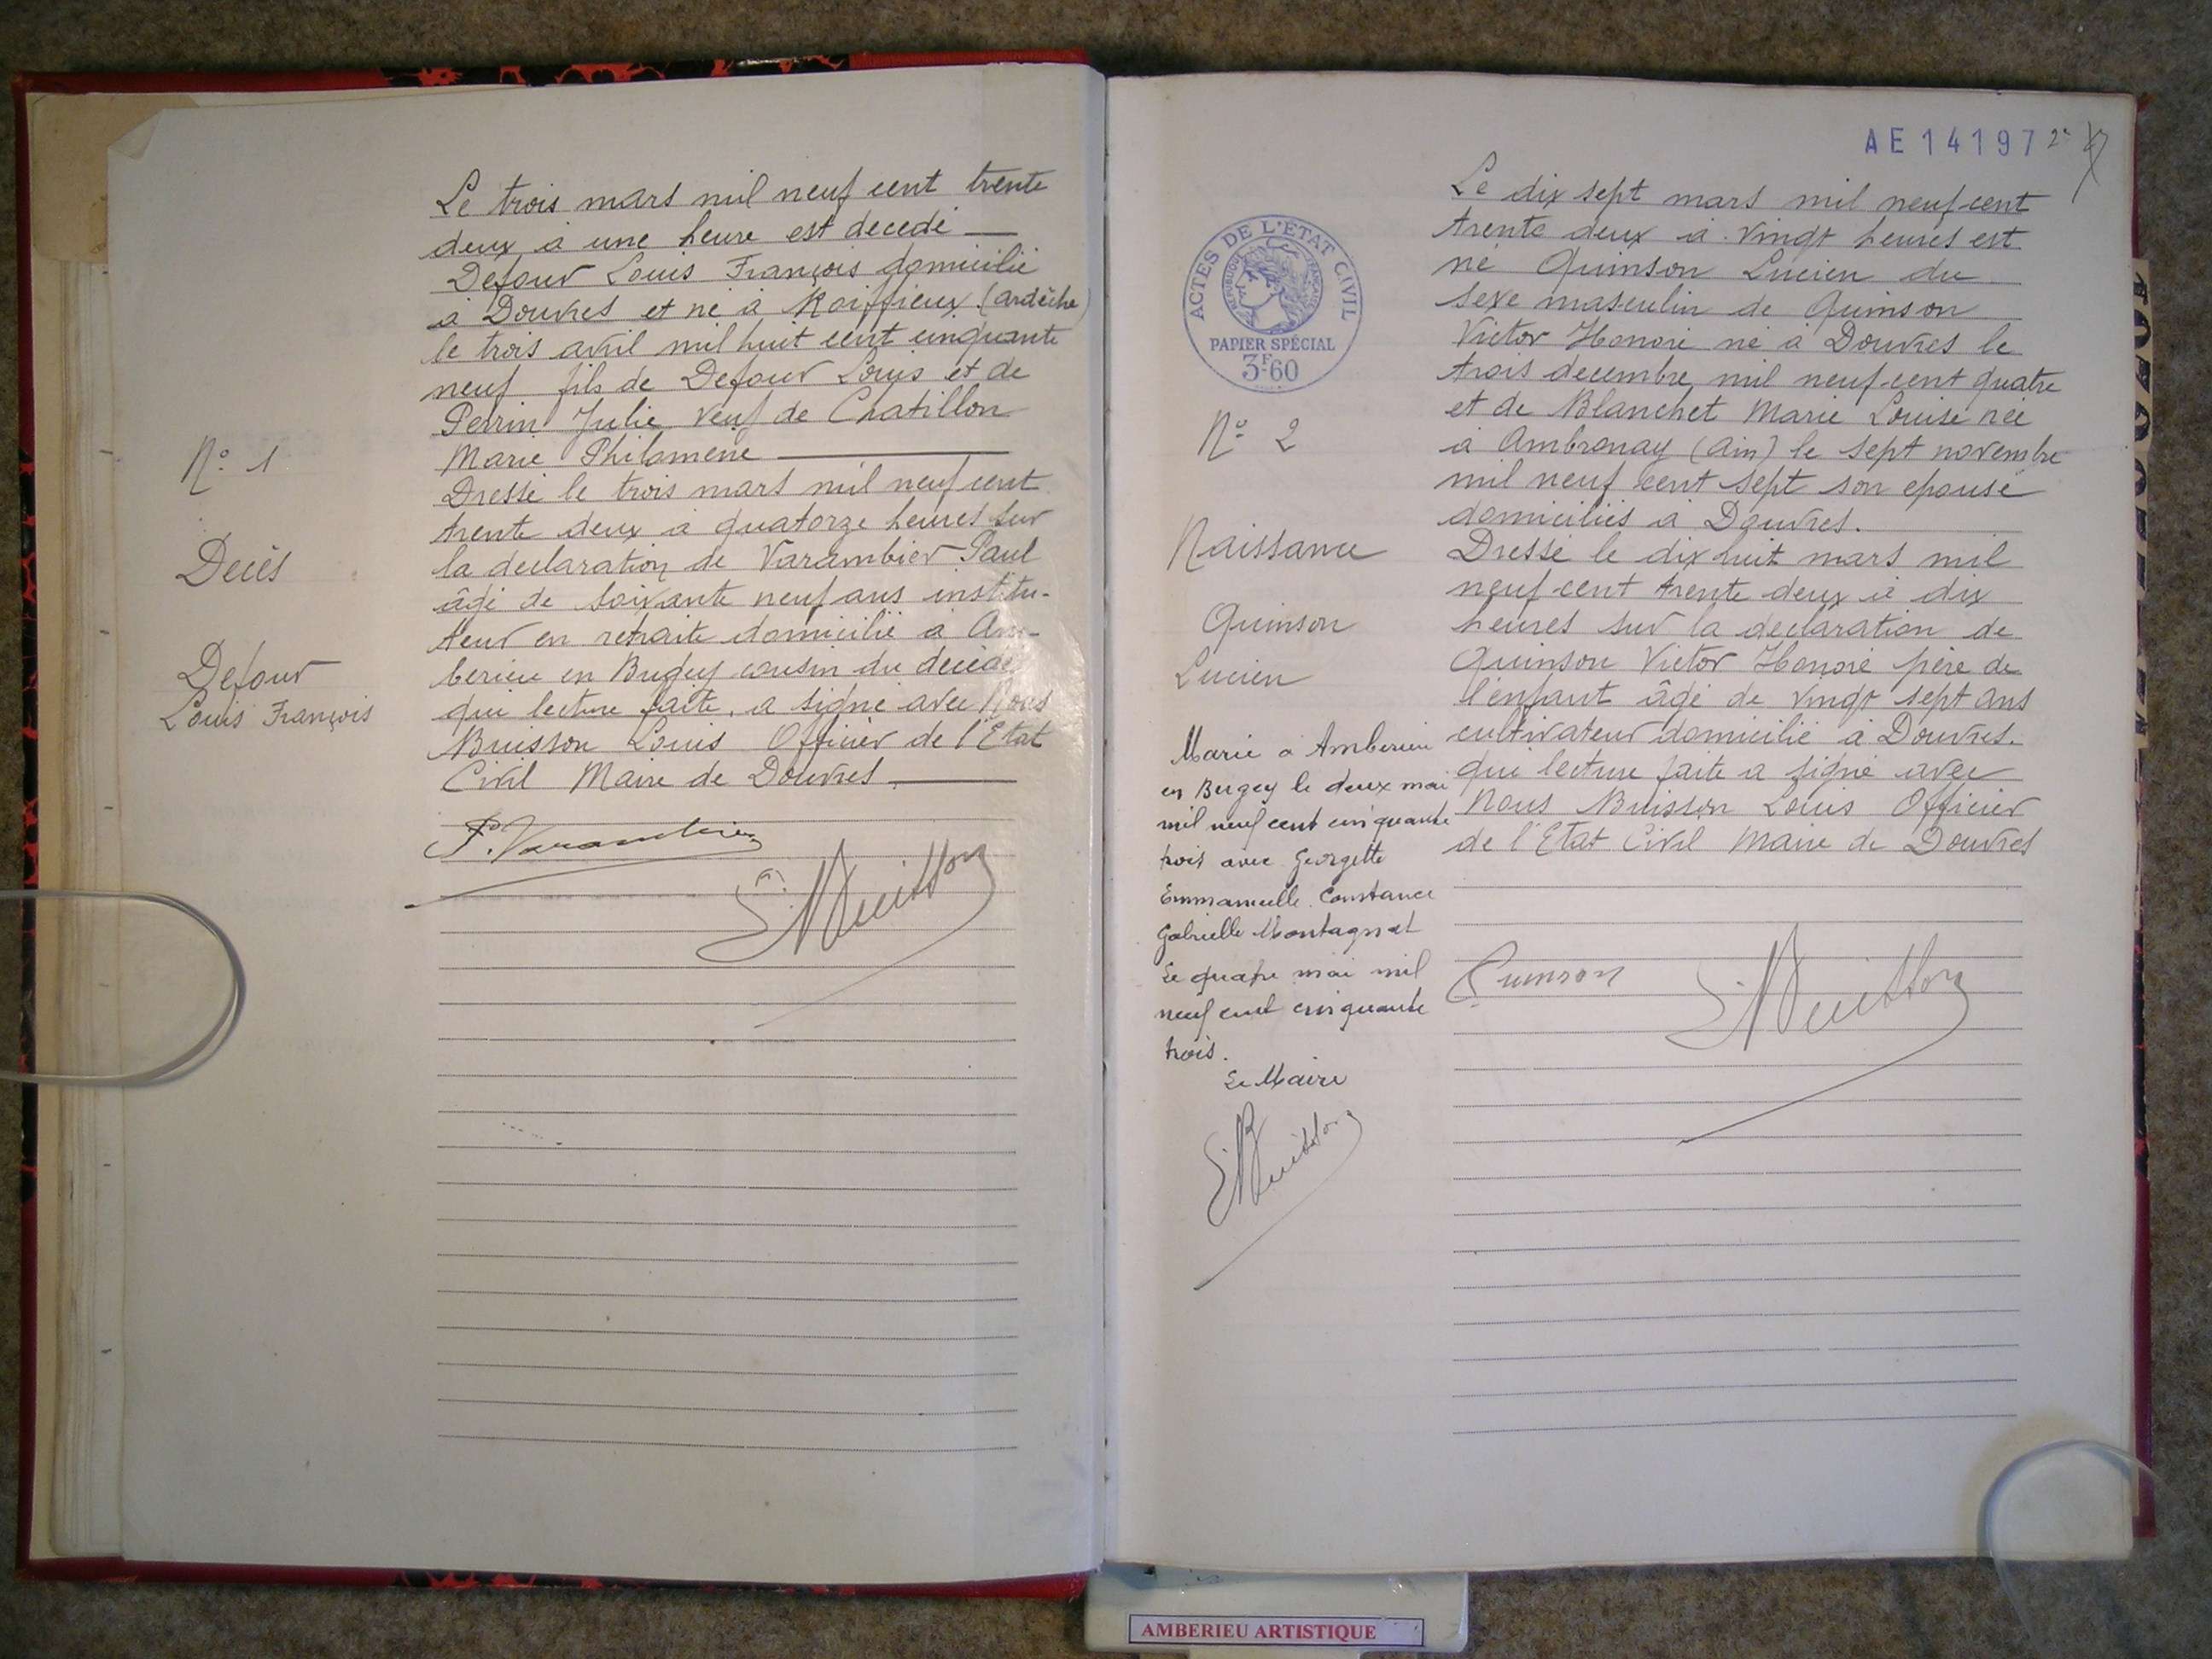 Le trois mars mil neuf cent trente
deux à une heure est décédé
Defour Louis François domicilié
à Douvres et né à Roiffieux (ardèche)
le trois avril mil huit cent cinquante
neuf fils de Defour Louis et de
Perrin Julie veuf de Chatillon
Marie Philomène
Dressé le trois mars mil neuf cent
trente deux à quatorze heures sur
la declaration de Varambier Paul
âgé de soixante neuf ans institu-
teur en retraite domicilié à Am-
berieu en Bugey cousin du décédé
qui lecture faite, a signé avec Nous
Buisson Louis Officier de l'Etat
Civil Maire de Douvres
P. Varambier
L. Buisson
N° 1
Décès
Defour
Louis François
AE 14197
2
ACTES DE L'ETAT CIVIL
REPUBLIQUE FRANÇAISE
PAPIER SPÉCIAL
3F60
N° 2
Naissance
Quinson
Lucien
Marié à Amberieu
en Bugey le deux mai
mil neuf cent cinquante
trois avec Georgette
Emmanuelle Constance
Gabrielle Montagnat
Le quatre mai mil
neuf cent cinquante
trois.
Le Maire
L. Buisson
Le dix sept mars mil neuf cent
trente deux à vingt heures est
né Quinson Lucien du
sexe masculin de Quinson
Victor Honoré né à Douvres le
trois decembre mil neuf cent quatre
et de Blanchet Marie Louise née
à Ambronay (Ain) le sept novembre
mil neuf cent sept son epouse
domiciliés à Douvres.
Dressé le dix huit mars mil
neuf cent trente deux à dix
heures sur la declaration de
Quinson Victor Honoré père de
l'enfant âgé de vingt sept ans
cultivateur domicilié à Douvres.
qui lecture faite a signé avec
Nous Buisson Louis Officier
de l'Etat Civil Maire de Douvres
Quinson
L. Buisson
AMBERIEU ARTISTIQUE